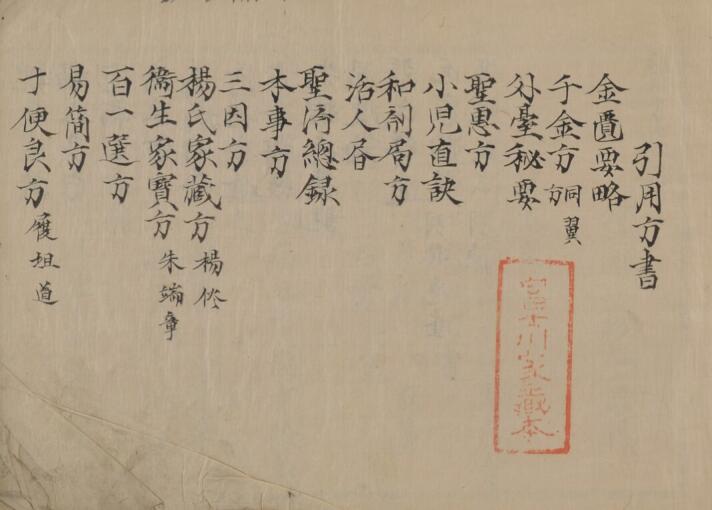 引用方書
金匱要略
千金方 同翼方
外臺秘要
聖惠方
小児直訣
和剤局方
活人書
聖済總録
本事方
三因方
楊氏家藏方 楊倓
衛生家寳方 朱端章
百一選方
易簡方
十便良方
富士川家藏本